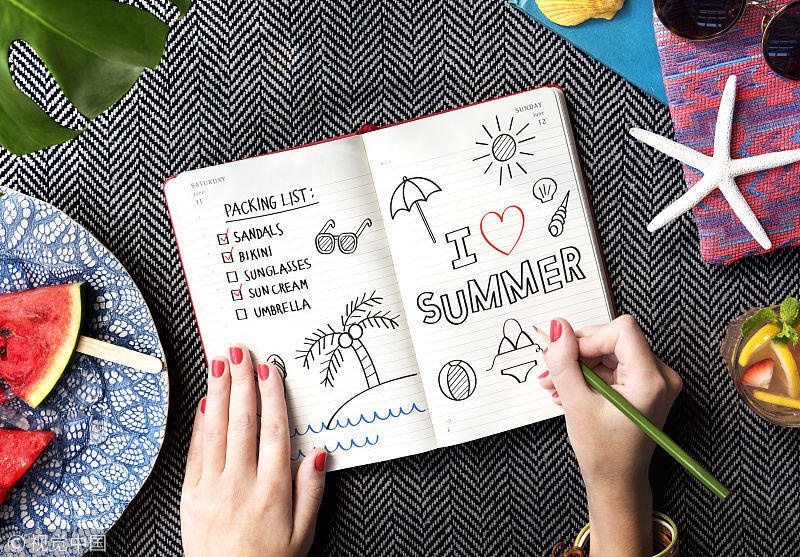 SATURDAY
June
11
PACKING LIST:
SANDALS
BIKINI
SUNGLASSES
SUN CREAM
UMBRELLA
SUNDAY
June
12
I
SUMMER
© 视觉中国